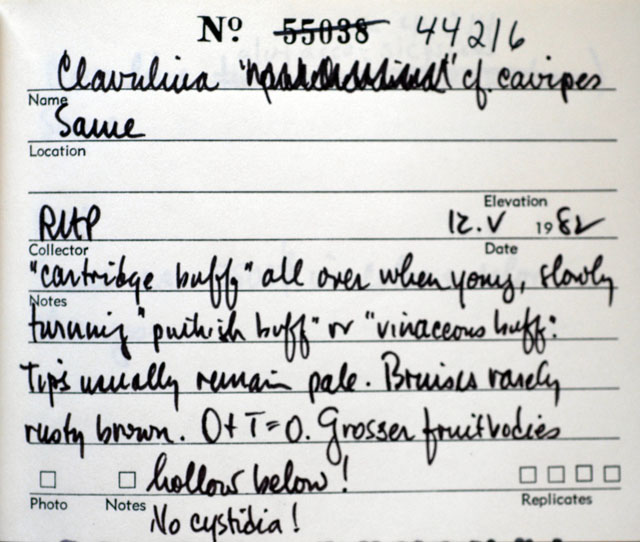 Nº 55038 44216
Clavulina " " cf. cavipes
Name
Same
Location
Elevation
RHP 12.V 1982
Collector Date
"cartridge buff" all over when young, slowly
Notes
turning "pinkish buff" or "vinaceous buff".
Tips usually remain pale. Bruises rarely
rusty brown. O + T = O. Grosser fruitbodies
hollow below!
Photo Notes Replicates
No cystidia!